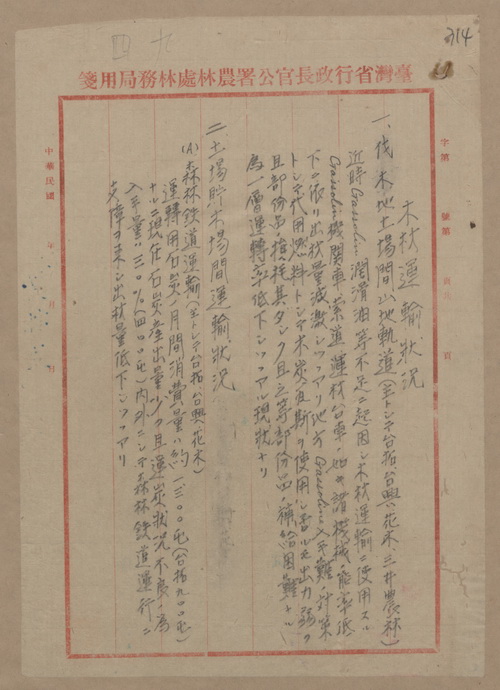 314
四九
臺灣省行政長官公署農林處林務局用箋
字第 號第 頁
木材運輸狀況
一、伐木地土場間山地軌道(主トシテ台拓台興、花木、三井農林)
近時Gassolin潤滑油等不足ニ起因シ木材運輸ニ使用スル
Gassolin機関車、索道運材台車、如キ諸機械ノ能率低
下ニ依リ出材量減激シツツアリ地方Gassolin入手難ノ対策
トシテ代用燃料トシテ木炭瓦斯ヲ使用シ居ルモ出力弱ク
且部份品損耗甚シク且之等部份品ノ補給困難ナル
為一層運轉率低下シツツアル現状ナリ
二、土場貯木場間運輸狀況
(A) 森林鉄道運輸(主トシテ台拓台興、花木)
運轉用石炭ノ月間消費量ハ約一三〇〇屯(台拓九〇〇屯)
ナルニ現在石炭産出量少ク且運炭狀況不良ノ為
入手量ハ三〇%(四〇〇屯)内外ニシテ森林鉄道運行ニ
支障ヲ来シ出材量低下シツツアリ
中華民國 年 月 日